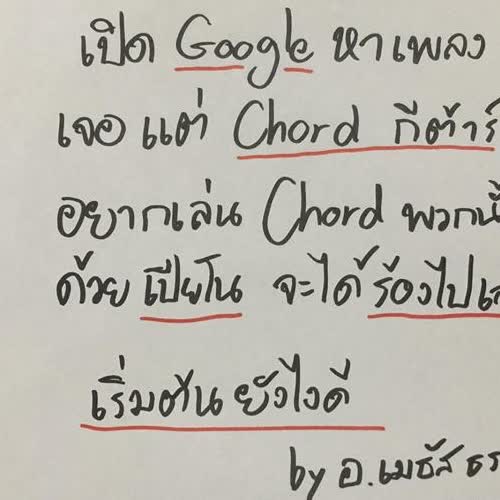 เปิด Google หาเพลง
เจอแต่ Chord กีต้าร์
อยากเล่น Chord พวกนี้
ด้วยเปียโน จะได้ร้องไปเล
เริ่มต้นยังไงดี
by อ.เมธัส ธร